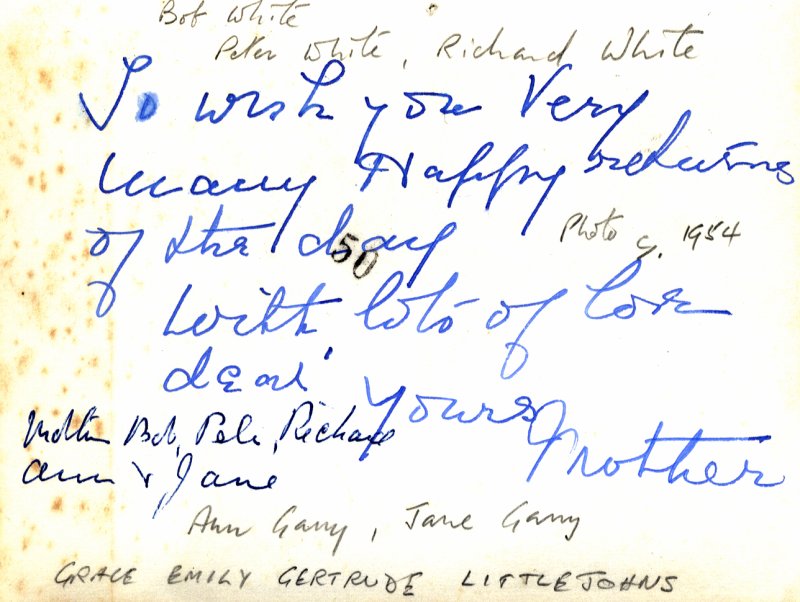 Bob White
Peter White, Richard White
To wish you Very
many Happy returns
of the day
50
Photo c. 1954
With lots of love
dear Yours
Mother
Mother Bob, Pete, Richard
Ann & Jane
Ann Garry, Jane Garry
GRACE EMILY GERTRUDE LITTLEJOHNS